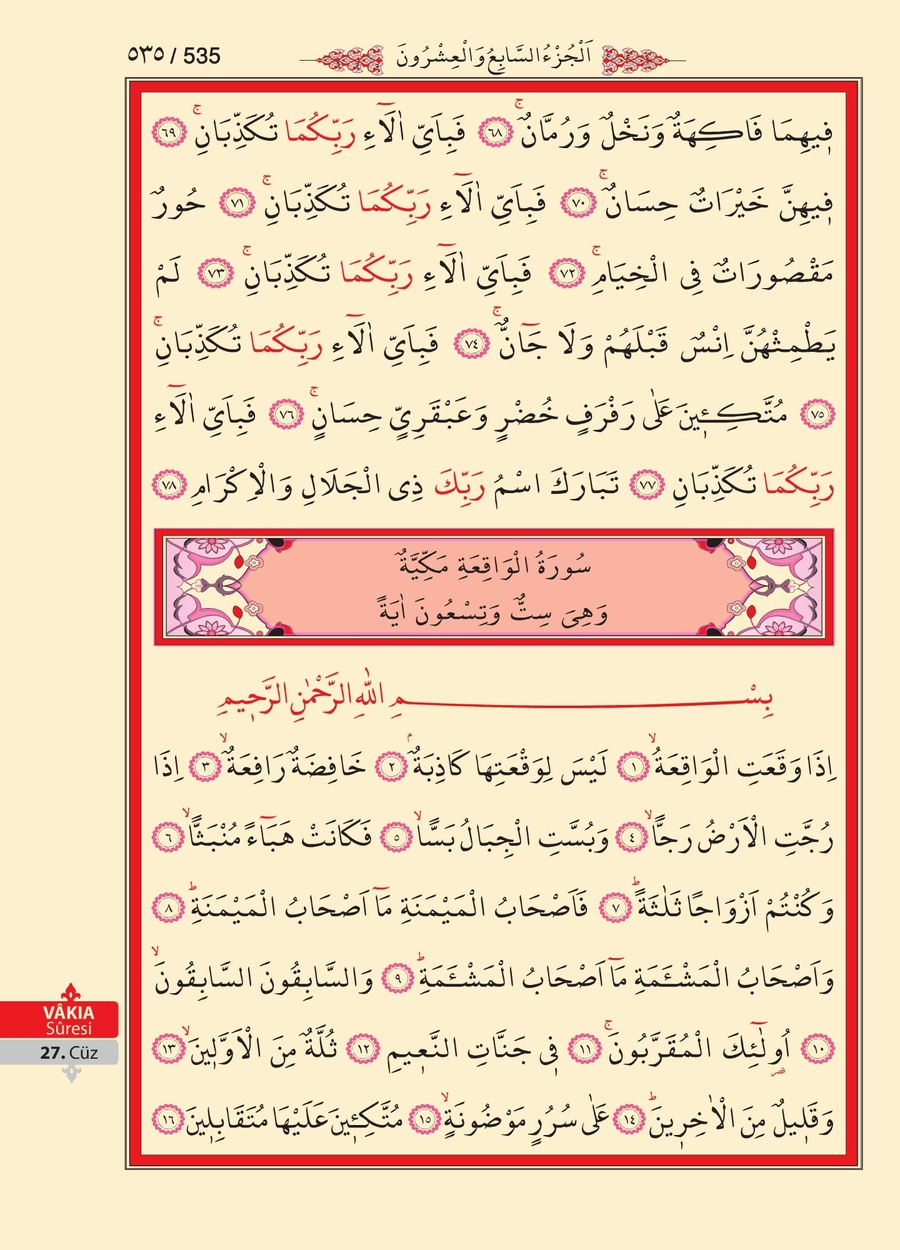 ٥٣٥ / 535
اَلْجُزْءُ السَّابِعُ وَالْعِشْرُونَ
ف۪يهِمَا فَاكِهَةٌ وَنَخْلٌ وَرُمَّانٌۚ ﴿٦٨﴾ فَبِاَيِّ اٰلَٓاءِ رَبِّكُمَا تُكَذِّبَانِۚ ﴿٦٩﴾
ف۪يهِنَّ خَيْرَاتٌ حِسَانٌۚ ﴿٧٠﴾ فَبِاَيِّ اٰلَٓاءِ رَبِّكُمَا تُكَذِّبَانِۚ ﴿٧١﴾ حُورٌ
مَقْصُورَاتٌ فِى الْخِيَامِۚ ﴿٧٢﴾ فَبِاَيِّ اٰلَٓاءِ رَبِّكُمَا تُكَذِّبَانِۚ ﴿٧٣﴾ لَمْ
يَطْمِثْهُنَّ اِنْسٌ قَبْلَهُمْ وَلَا جَٓانٌّۚ ﴿٧٤﴾ فَبِاَيِّ اٰلَٓاءِ رَبِّكُمَا تُكَذِّبَانِۚ
﴿٧٥﴾ مُتَّكِـ۪ٔينَ عَلٰى رَفْرَفٍ خُضْرٍ وَعَبْقَرِيٍّ حِسَانٍۚ ﴿٧٦﴾ فَبِاَيِّ اٰلَٓاءِ
رَبِّكُمَا تُكَذِّبَانِ ﴿٧٧﴾ تَبَارَكَ اسْمُ رَبِّكَ ذِى الْجَلَالِ وَالْاِكْرَامِ ﴿٧٨﴾
سُورَةُ الْوَاقِعَةِ مَكِّيَّةٌ
وَهِىَ سِتٌّ وَتِسْعُونَ اٰيَةً
بِسْمِ اللّٰهِ الرَّحْمٰنِ الرَّح۪يمِ
اِذَا وَقَعَتِ الْوَاقِعَةُۙ ﴿١﴾ لَيْسَ لِوَقْعَتِهَا كَاذِبَةٌۢ ﴿٢﴾ خَافِضَةٌ رَافِعَةٌۙ ﴿٣﴾ اِذَا
رُجَّتِ الْاَرْضُ رَجًّاۙ ﴿٤﴾ وَبُسَّتِ الْجِبَالُ بَسًّاۙ ﴿٥﴾ فَكَانَتْ هَبَٓاءً مُنْبَثًّاۙ ﴿٦﴾
وَكُنْتُمْ اَزْوَاجًا ثَلٰثَةًۜ ﴿٧﴾ فَاَصْحَابُ الْمَيْمَنَةِ مَٓا اَصْحَابُ الْمَيْمَنَةِۜ ﴿٨﴾
وَاَصْحَابُ الْمَشْـَٔمَةِ مَٓا اَصْحَابُ الْمَشْـَٔمَةِۜ ﴿٩﴾ وَالسَّابِقُونَ السَّابِقُونَۙ
﴿١٠﴾ اُو۬لٰٓئِكَ الْمُقَرَّبُونَۚ ﴿١١﴾ ف۪ى جَنَّاتِ النَّع۪يمِ ﴿١٢﴾ ثُلَّةٌ مِنَ الْاَوَّل۪ينَۙ ﴿١٣﴾
وَقَل۪يلٌ مِنَ الْاٰخِر۪ينَۜ ﴿١٤﴾ عَلٰى سُرُرٍ مَوْضُونَةٍۙ ﴿١٥﴾ مُتَّكِـ۪ٔينَ عَلَيْهَا مُتَقَابِل۪ينَ ﴿١٦﴾
VÂKIA
Sûresi
27. Cüz